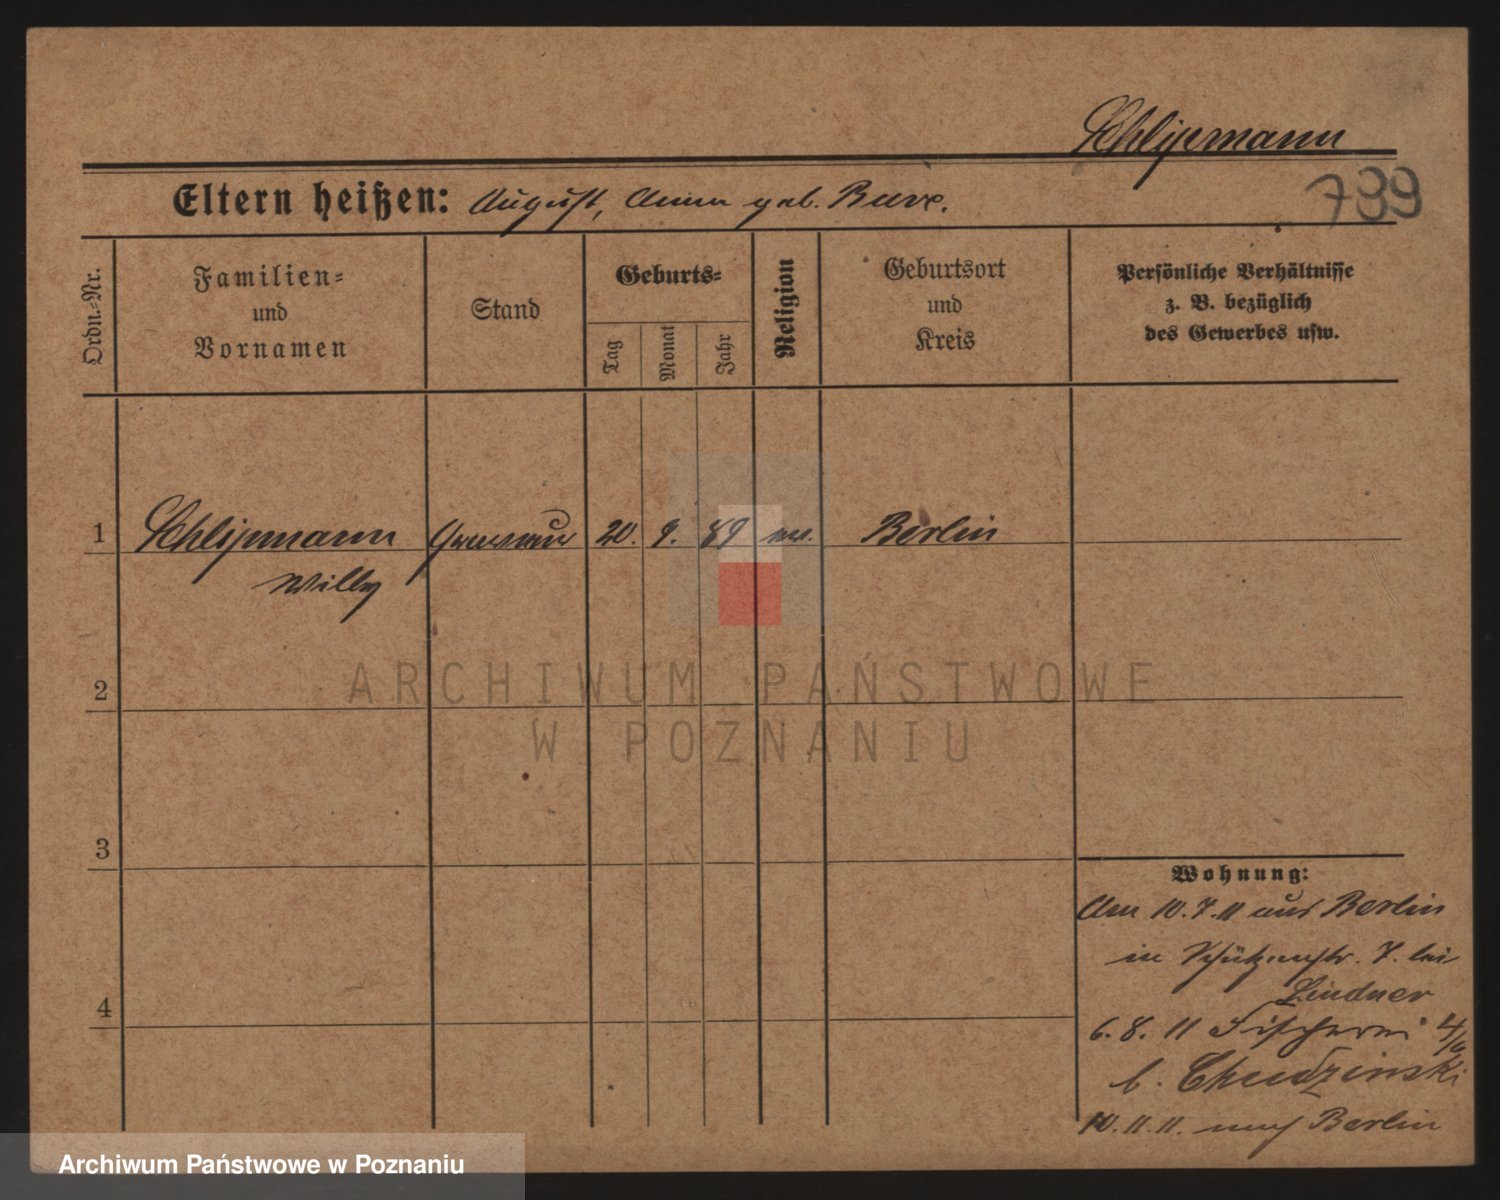 Schlipmann
739
Eltern heißen: August, Anna geb. Buve.
Ordn.-Nr.
Familien-
und
Vornamen
Stand
Geburts-
Tag
Monat
Jahr
Religion
Geburtsort
und
Kreis
Persönliche Verhältnisse
z. B. bezüglich
des Gewerbes usw.
1 Schlipmann Graveur 20. 9. 89 ev. Berlin
Willy
2
3
4
Wohnung:
Am 10.7.11 aus Berlin
in Schützenstr. 7. bei
Lindner
6.8.11 Fischerei 4/6
b. Chudzinski
10.11.11. nach Berlin
ARCHIWUM PAŃSTWOWE
W POZNANIU
Archiwum Państwowe w Poznaniu